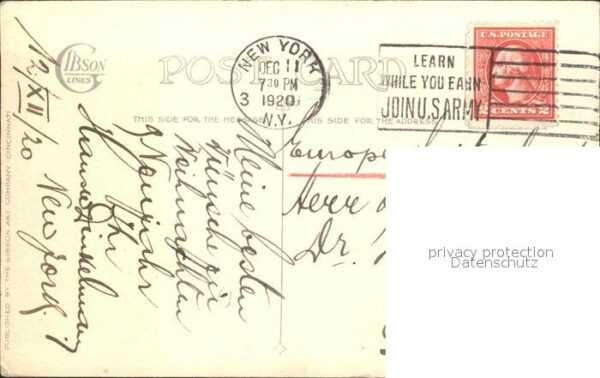 GIBSON
LINES
POST CARD
THIS SIDE FOR THE MESSAGE
NEW YORK
DEC 11
7 30 PM
1920
3
N.Y.
LEARN
WHILE YOU EARN
JOIN U.S. ARMY
U.S. POSTAGE
2 CENTS 2
12/XII/20 New York.
Meine besten
Wünsche zu
Weihnachten
& Neujahr
Ihr
Europe
Herr
Dr.
PUBLISHED BY THE GIBSON ART COMPANY, CINCINNATI
privacy protection
Datenschutz